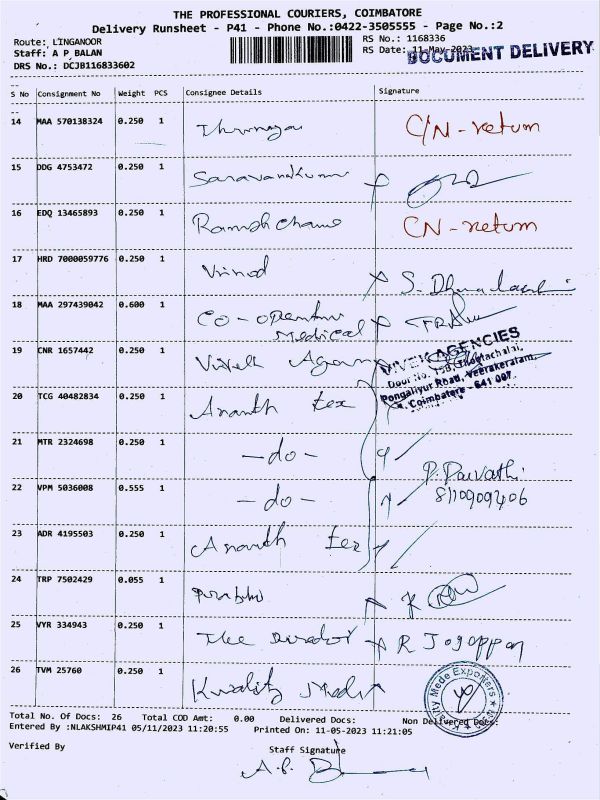 THE PROFESSIONAL COURIERS, COIMBATORE
Delivery Runsheet - P41 - Phone No.:0422-3505555 - Page No.:2
Route: LINGANOOR RS No.: 1168336
Staff: A P BALAN RS Date: 11-May-2023
DOCUMENT DELIVERY
DRS No.: DCJB116833602
S No Consignment No Weight PCS Consignee Details Signature
14 MAA 570138324 0.250 1 C/N - return
15 DDG 4753472 0.250 1 Saravanakumar
16 EDQ 13465893 0.250 1 CN - return
17 HRD 7000059776 0.250 1 Vinod
18 MAA 297439042 0.600 1 Co-operative
Medical
19 CNR 1657442 0.250 1
VIVEK AGENCIES
Pongaliyur Road, Veerakeralam,
Coimbatore - 641 007.
20 TCG 40482834 0.250 1 Ananth tex
21 MTR 2324698 0.250 1 -do-
P. Parvathi
22 VPM 5036008 0.555 1 -do- 8110909406
23 ADR 4195503 0.250 1 Ananth tex
24 TRP 7502429 0.055 1 Prabhu
25 VYR 334943 0.250 1 The R Jogappan
26 TVM 25760 0.250 1 Kwality
Total No. Of Docs: 26 Total COD Amt: 0.00 Delivered Docs: Non Delivered Docs:
Entered By :NLAKSHMIP41 05/11/2023 11:20:55 Printed On: 11-05-2023 11:21:05
Verified By Staff Signature